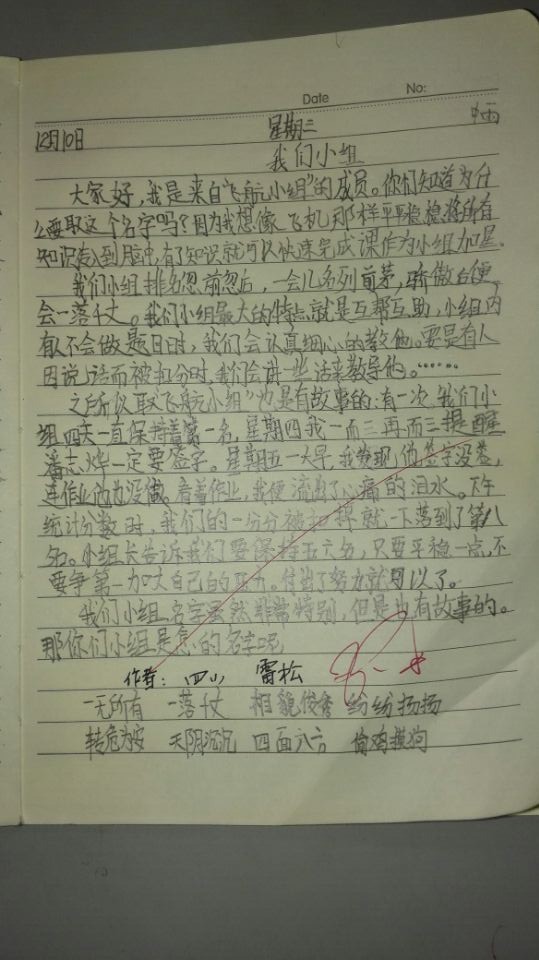 Date No:
12月10日 星期三
我们小组
大家好,我是来自"飞航小组"的成员。你们知道为什
么要取这个名字吗?因为我想像飞机那样平平稳稳将所有
知识装入到脑中,有了知识就可以快速完成课作为小组加星。
我们小组排名忽前忽后,一会儿名列前茅,骄傲后便
会一落千丈。我们小组最大的特点就是互帮互助,小组内
有人不会做题目时,我们会认真细心的教他。要是有人
因说话而被扣分时,我们会讲一些话来教导他。……
之所以取"飞航小组"也是有故事的:有一次,我们小
组四天一直保持着第一名,星期四我一而三再而三提醒
着志烨一定要签字。星期五一大早,我发现,他签字没签,
连作业他也没做。看着作业,我便流出了心痛的泪水。下午
统计分数时,我们的一份分被扣掉就一下落到了第八
名。小组长告诉我们要保持五六名,只要平稳一点,不
要争第一,加大自己的压力。付出了努力就可以了。
我们小组名字虽然非常特别,但是也有故事的。
那你们小组是怎的名字呢
作者: 四小 雷松
一无所有 一落千丈 相貌俊秀 纷纷扬扬
转危为安 天阴沉沉 四面八方 偷鸡摸狗